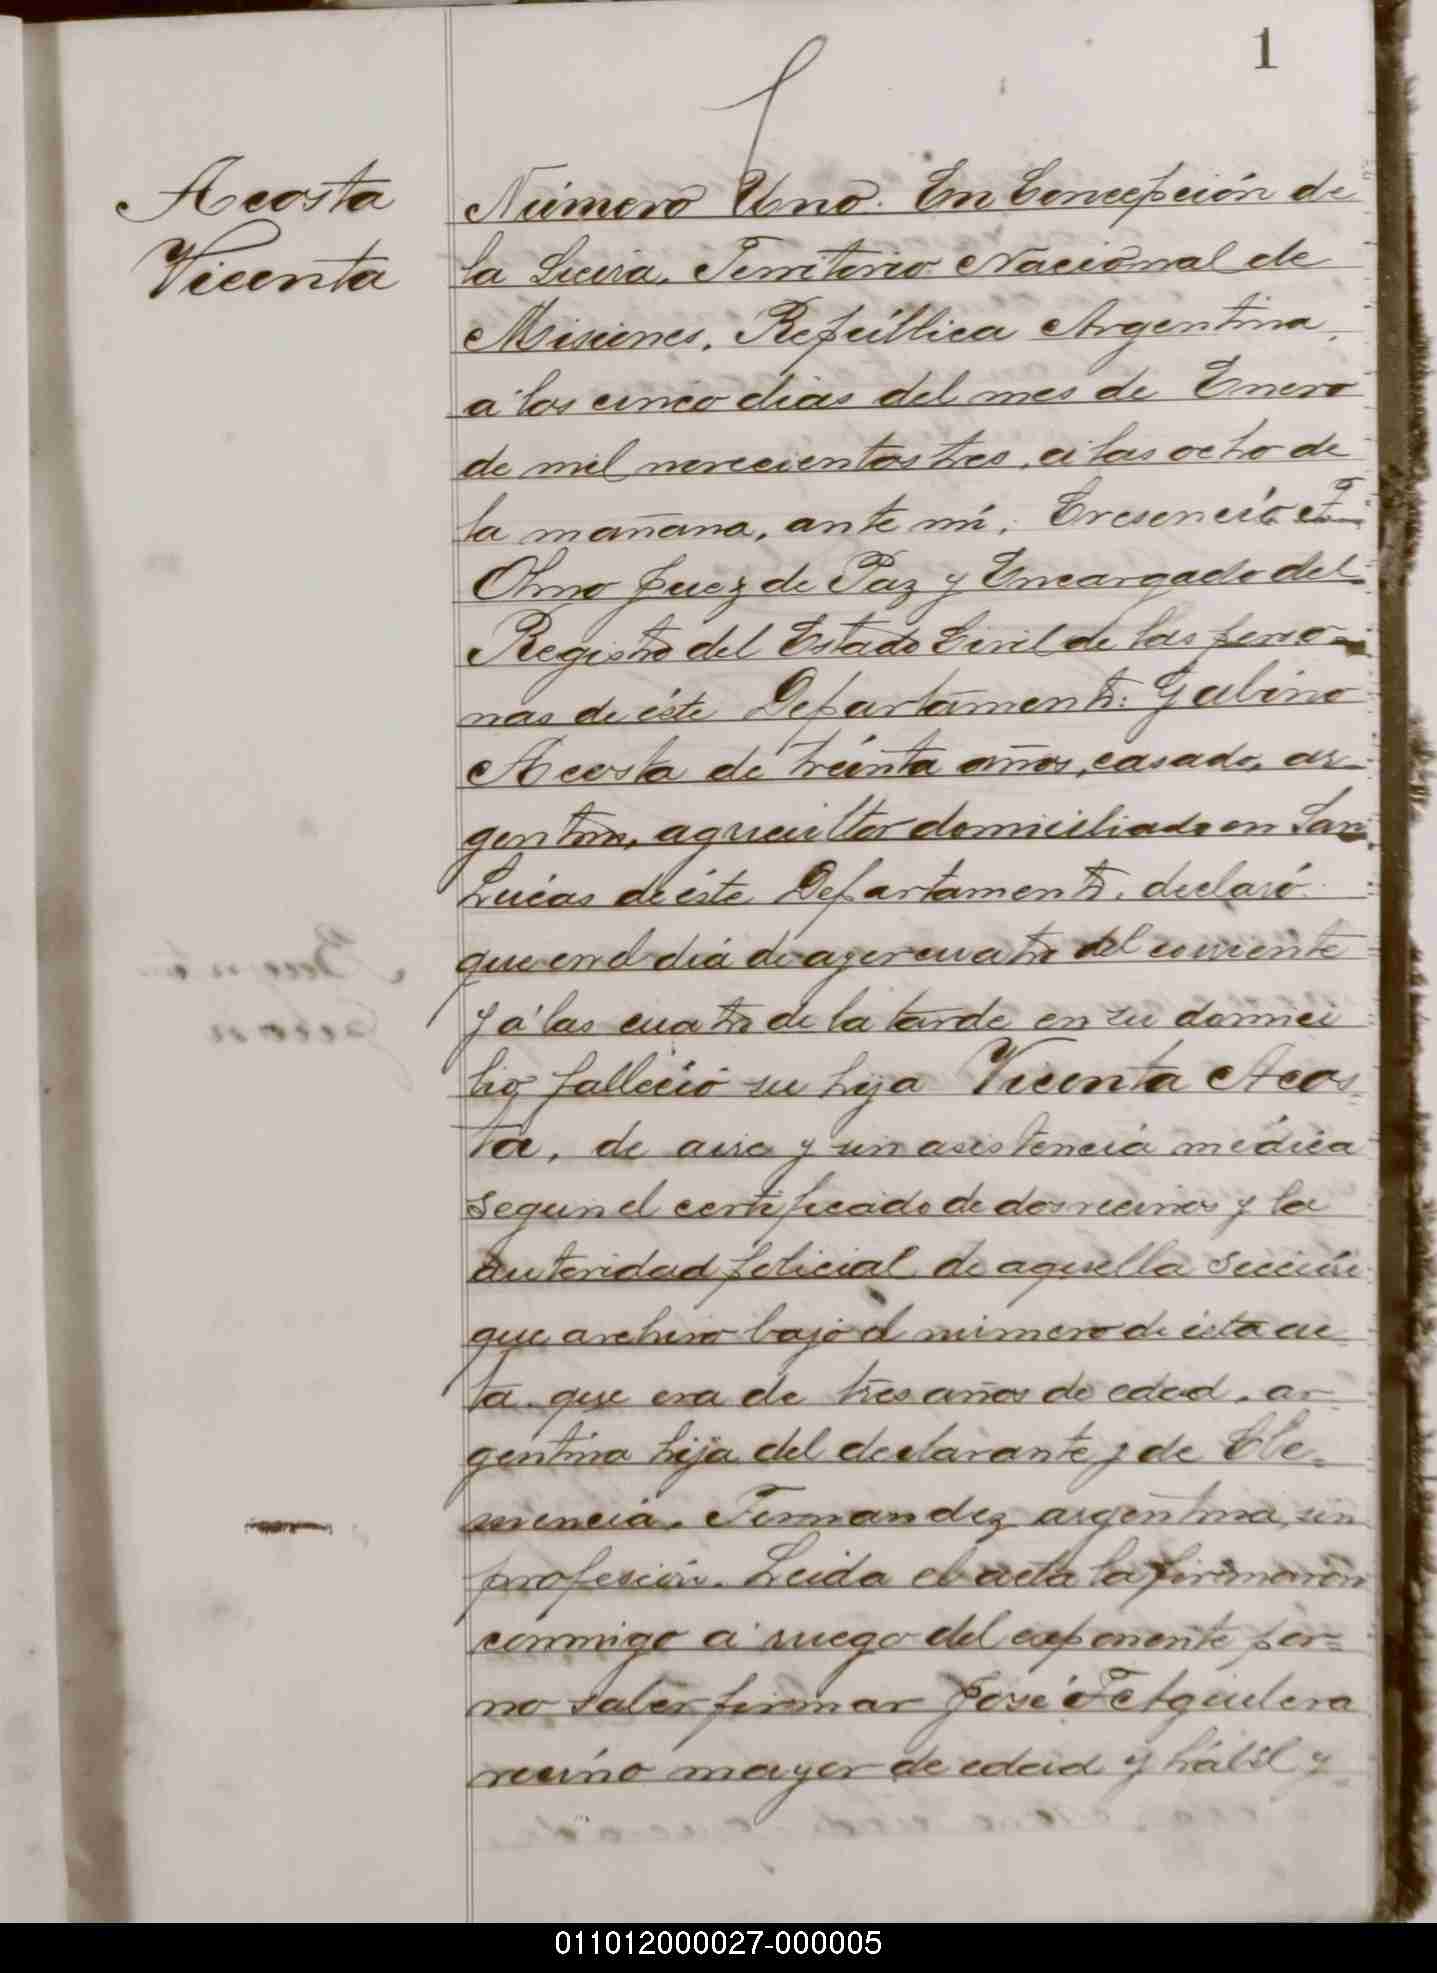 1
Acosta
Vicenta
Número Uno. En Concepción de
la Sierra, Territorio Nacional de
Misiones, República Argentina,
a los cinco dias del mes de Enero
de mil novecientos tres, a las ocho de
la mañana, ante mí, Cresencio F.
Olmo Juez de Paz y Encargado del
Registro del Estado Civil de las perso=
nas de éste Departamento: Gabino
Acosta de treinta años, casado, ar-
gentino, agricultor domiciliado en San
Lucas de éste Departamento, declaró:
que en el diá de ayer cuatro del corriente
y á las cuatro de la tarde en su domici
lio, falleció su hija Vicenta Acos=
ta, de aire y sin asistencia médica
segun el certificado de dos vecinos y la
autoridad policial de aquella sección
que archivo bajo el número de esta ac
ta. que era de tres años de edad, ar-
gentina hija del declarante y de Cle=
mencia Fernandez argentina, sin
profesión. Leida el acta la firmaron
conmigo a ruego del exponente por=
no saber firmar José F. Aguilera
vecino mayor de edad y hábil y
011012000027-000005